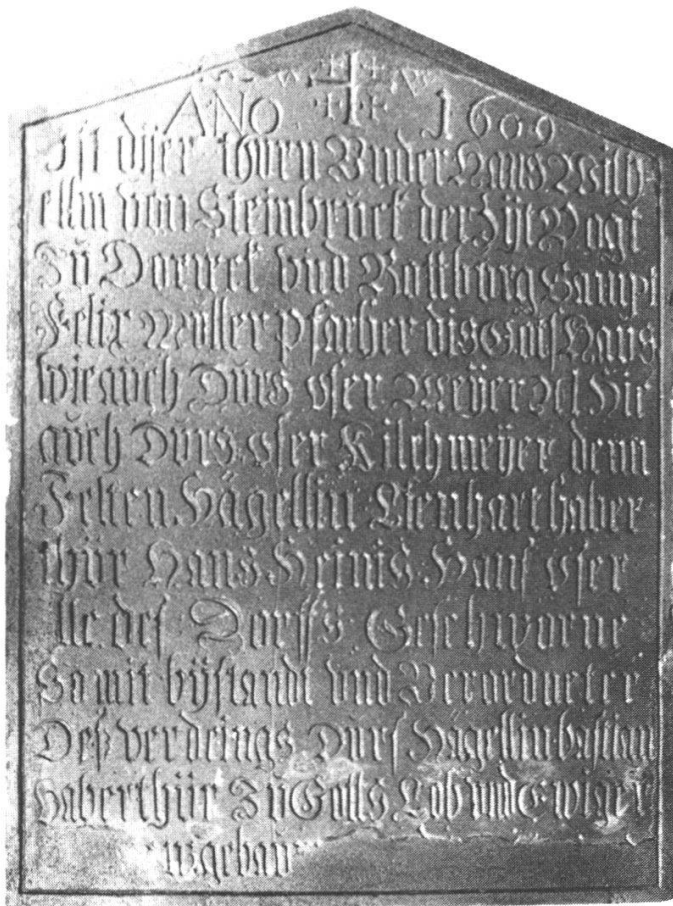 ANO 1609
Ist diser thurn Vnder Hans Wilh
ellm von Steinbrück der Zÿt Vagt
Zů Dorneck vnd Rottburg Sampt
Felix Müller pfarher dis Gots Haůs
wie aůch Důrs vser Meÿer Hie
aůch Důrs vser Kilchmeÿer denn
Felten Hägellin Lienhart haber
thür Hans Heinis Hans vser
lle des Dorffs Geschworne
Sa mit bÿstandt vnd Verordneter
Deß verdeings Durs Hägellin bastian
Haberthür Zů Gotts Lob vnd Ewiger
gebau